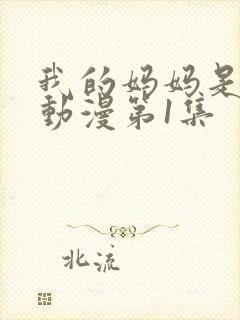 我的妈妈是
動漫第1集
北流